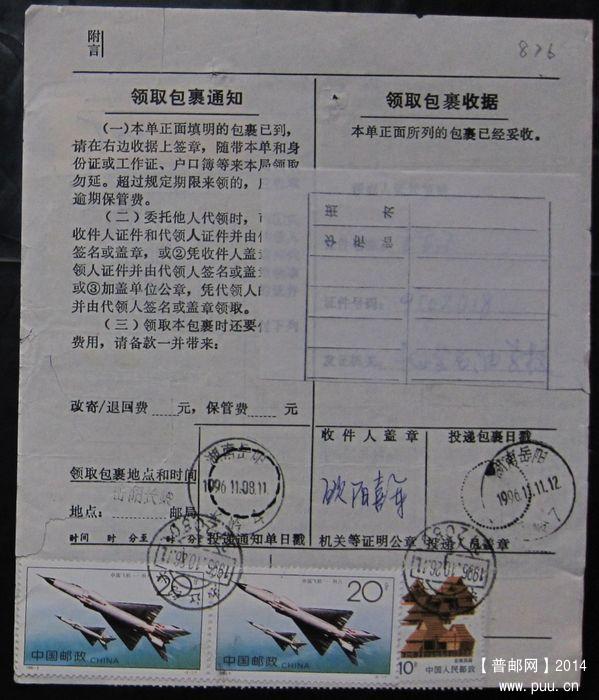 附言
826
领取包裹通知
(一)本单正面填明的包裹已到,
请在右边收据上签章,随带本单和身
份证或工作证、户口簿等来本局领取
勿延。超过规定期限来领的,
逾期保管费。
(二)委托他人代领时,
收件人证件和代领人证件并由
签名或盖章,或②凭收件人盖
领人证件并由代领人签名或盖
或③加盖单位公章,凭代领人
并由代领人签名或盖章领取。
(三)领取本包裹时还要付下列
费用,请备款一并带来:
改寄/退回费 元,保管费 元
领取包裹地点和时间
地点: 邮局
时间 时 分至 时 分
领取包裹收据
本单正面所列的包裹已经妥收。
证件号码:
发证机关:
收件人盖章
投递包裹日戳
湖南岳阳
1996.11.08.11
湖南岳阳
1996.11.11.12
7
投递通知单日戳
机关等证明公章
投递人员盖章
1996.10.26.11
1996.10.26.11
20分
中国邮政 CHINA
20分
中国邮政 CHINA
10分
中国人民邮政
【普邮网】2014
www.puu.cn